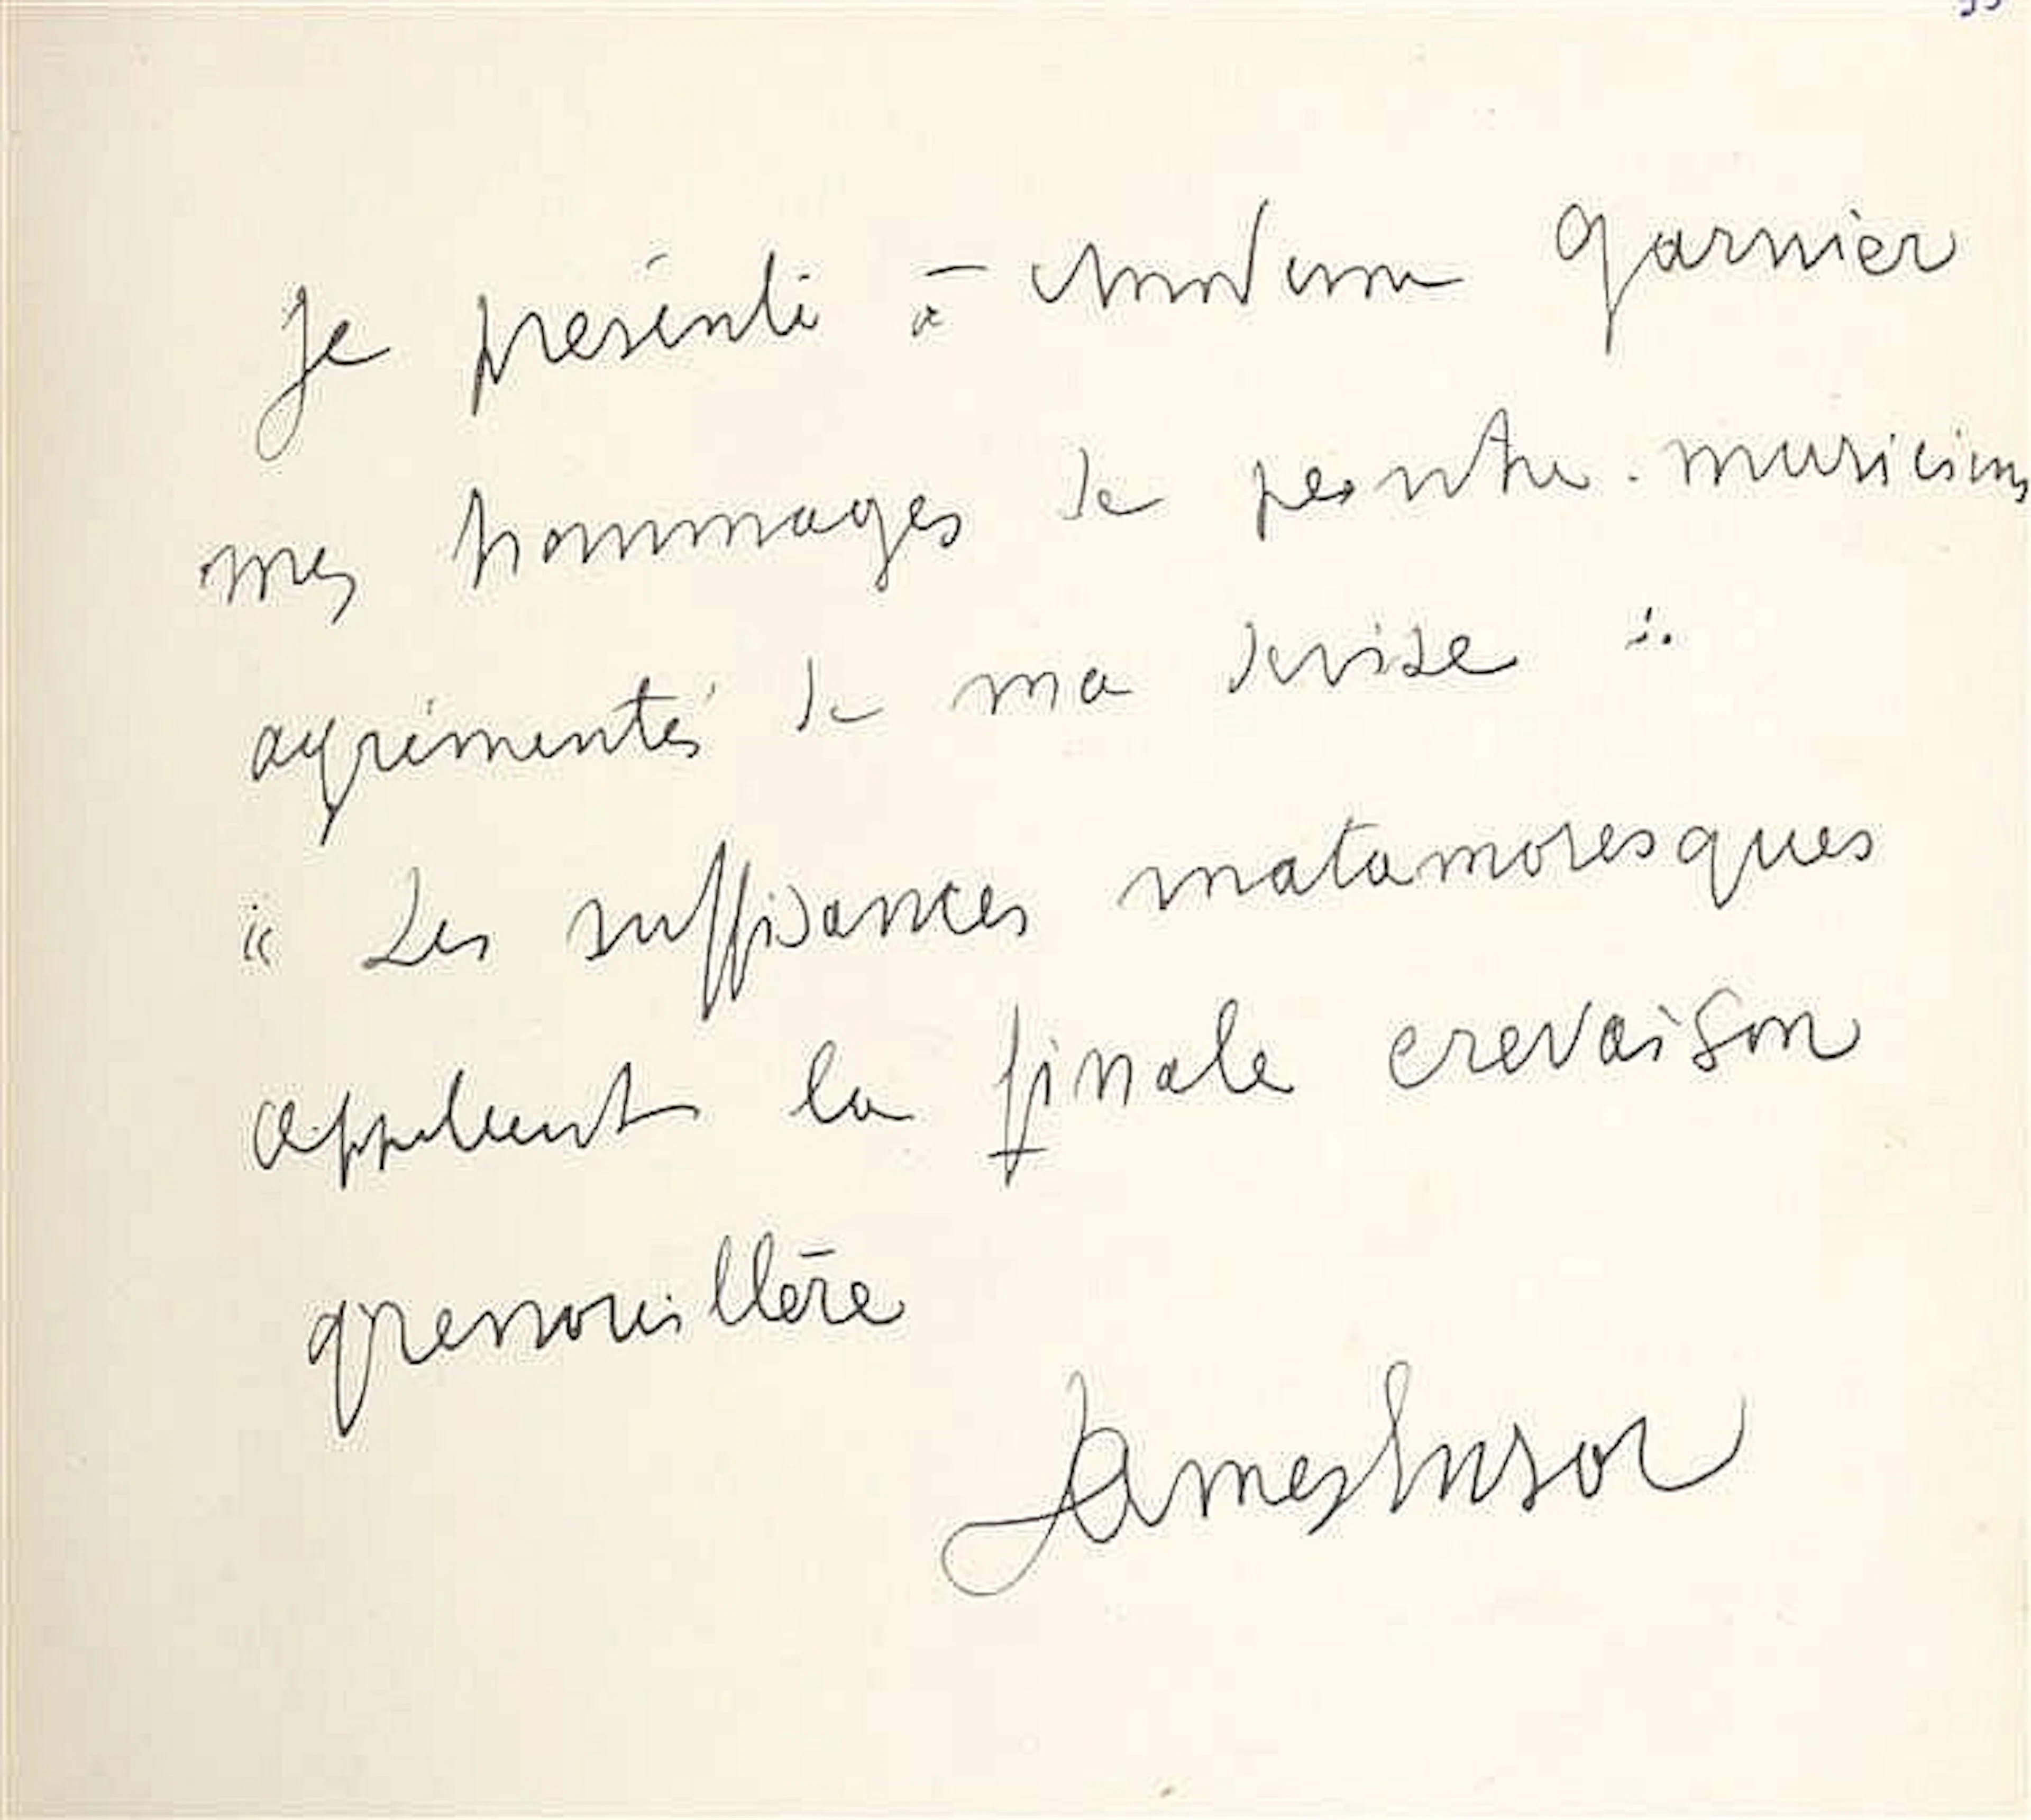 Je présente à Madame Garnier
mes hommages de peintre. musicien
agrémentés de ma devise :
" Les suffisances matamoresques
appellent la finale crevaison
grenouillère
James Ensor